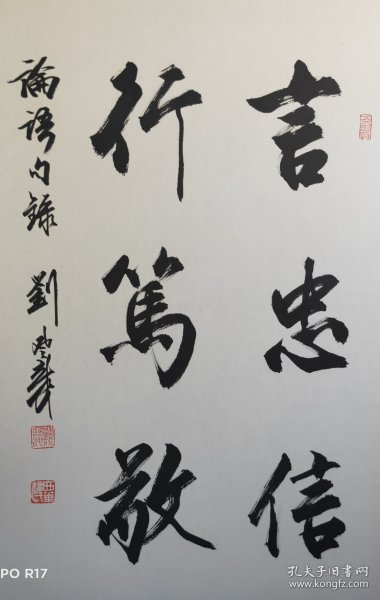 言忠信
行篤敬
論語句錄 劉
PO R17
孔夫子旧书网
kongfz.com